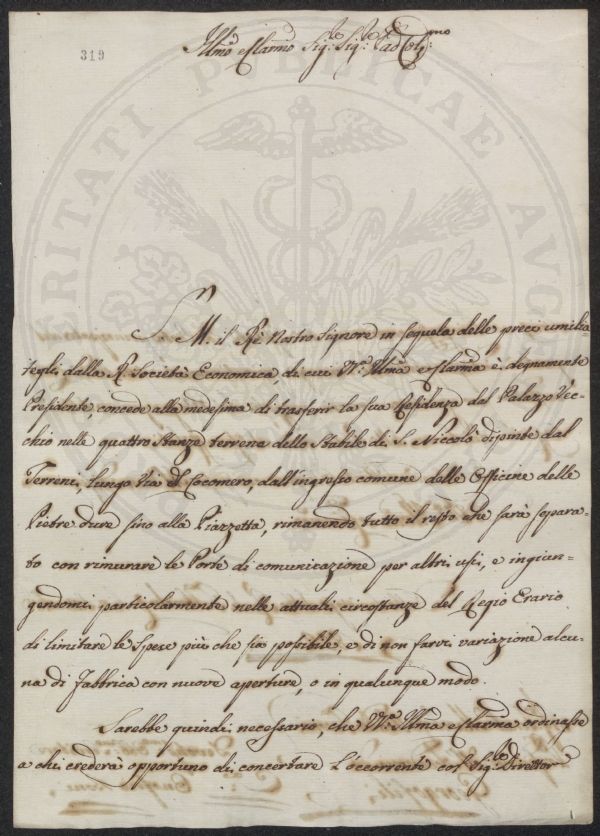 319
Illmo e Clarmo Sig:re Sig:re Pad Col:mo
S. M. il Re Nostro Signore in sequela delle preci umilia-
tegli dalla R. Società Economica, di cui V.ª Illma e Clarma è degnamente
Presidente, concede alla medesima di trasferir la sua Residenza dal Palazzo Vec-
chio nelle quattro Stanze terrene dello Stabile di S. Niccolò dipinte dal
Terreni, lungo Via del Cocomero, dall'ingresso comune delle Officine delle
Pietre dure fino alla Piazzetta, rimanendo tutto il resto che sarà separa-
to con rimurare le Porte di comunicazione per altri usi, e ingiun-
gendomi particolarmente nelle attuali circostanze del Regio Erario
di limitare le Spese più che sia possibile, e di non farvi variazione alcu-
na di fabbrica con nuove aperture, o in qualunque modo.
Sarebbe quindi necessario, che V.ª Illma e Clarma ordinasse
a chi crederà opportuno di concertare l'occorrente col Sig:re Direttor
VERITATI PUBLICAE AUG
1